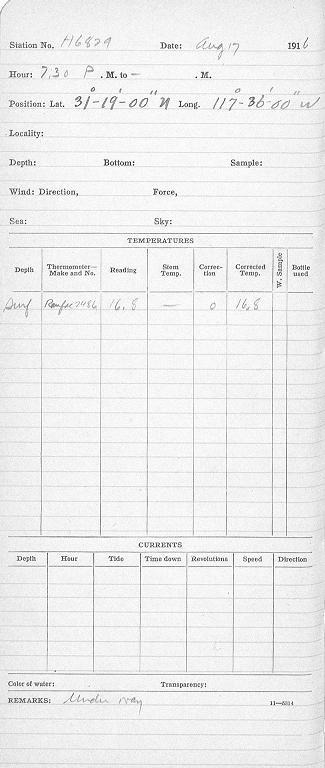 Station No. H6829 Date: Aug 17 1916
Hour: 7.30 P. M. to — . M.
Position: Lat. 31°-19'-00" N Long. 117°-36'-00" W
Locality:
Depth: Bottom: Sample:
Wind: Direction, Force,
Sea: Sky:
TEMPERATURES
Depth Thermometer—Make and No. Reading Stem Temp. Correction Corrected Temp. W. Sample Bottle used
Surf 16.8 — 0 16.8
CURRENTS
Depth Hour Tide Time down Revolutions Speed Direction
Color of water: Transparency:
REMARKS: Under way 11—5314